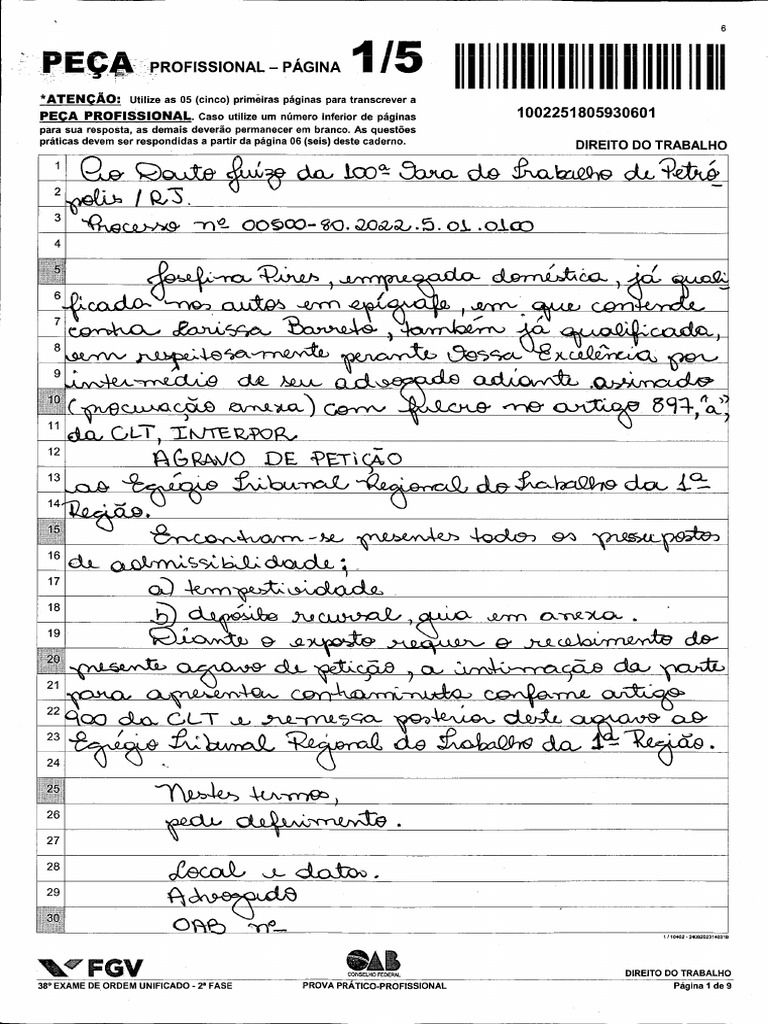 6
PEÇA PROFISSIONAL – PÁGINA 1/5
*ATENÇÃO: Utilize as 05 (cinco) primeiras páginas para transcrever a
PEÇA PROFISSIONAL. Caso utilize um número inferior de páginas
para sua resposta, as demais deverão permanecer em branco. As questões
práticas devem ser respondidas a partir da página 06 (seis) deste caderno.
1002251805930601
DIREITO DO TRABALHO
1 Ao Douto Juízo da 100ª Vara do Trabalho de Petró
2 polis / RJ.
3 Processo nº 00500-80.2022.5.01.0100
4
5 Josefina Pires, empregada doméstica, já quali
6 ficada nos autos em epígrafe, em que contende
7 contra Larissa Barreto, também já qualificada,
8 vem respeitosamente perante Vossa Excelência por
9 intermédio de seu advogado adiante assinado
10 (procuração anexa) com fulcro no artigo 897, "a",
11 da CLT, INTERPOR
12 AGRAVO DE PETIÇÃO
13 ao Egrégio Tribunal Regional do Trabalho da 1ª
14 Região.
15 Encontram-se presentes todos os pressupostos
16 de admissibilidade;
17 a) tempestividade
18 b) depósito recursal, guia em anexa.
19 Diante o exposto requer o recebimento do
20 presente agravo de petição, a intimação da parte
21 para apresentar contraminuta conforme artigo
22 900 da CLT e remessa posterior deste agravo ao
23 Egrégio Tribunal Regional do Trabalho da 1ª Região.
24
25 Nestes termos,
26 pede deferimento.
27
28 Local e data.
29 Advogado
30 OAB nº
FGV
OAB
CONSELHO FEDERAL
38º EXAME DE ORDEM UNIFICADO - 2ª FASE
PROVA PRÁTICO-PROFISSIONAL
DIREITO DO TRABALHO
Página 1 de 9